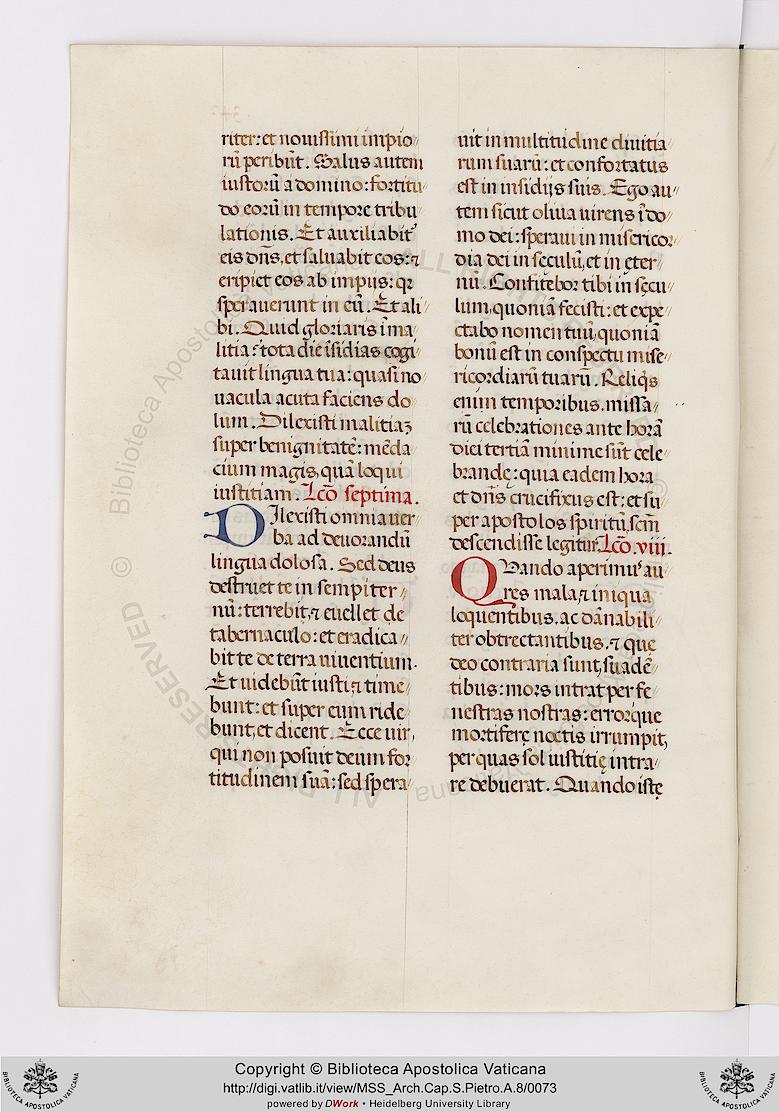 riter: et nouissimi impio
rū peribūt. Salus autem
iustorū a domino: fortitu
do eorū in tempore tribu
lationis. Et auxiliabit᾽
eis dn̄s, et saluabit eos: ⁊
eripiet eos ab impijs: qꝛ
sperauerunt in eū. Et ali
bi. Quid gloriaris ī ma
litia: tota die īsidias cogi
tauit lingua tua: quasi no
uacula acuta faciens do
lum. Dilexisti malitiaꝫ
super benignitatē: mēda
cium magis, quā loqui
iustitiam. Lcō septima.
DIlexisti omnia uer
ba ad deuorandū
lingua dolosa. Sed deus
destruet te in sempiter
nū: terrebit, ⁊ euellet de
tabernaculo: et eradica
bit te de terra uiuentium.
Et uidebūt iusti, ⁊ time
bunt: et super eum ride
bunt, et dicent. Ecce uir,
qui non posuit deum for
titudinem suā: sed spera
uit in multitudine diuitia
rum suarū: et confortatus
est in insidijs suis. Ego au
tem sicut oliua uirens ī do
mo dei: speraui in misericor
dia dei in seculū, et in ęter
nū. Confitebor tibi in sęcu
lum, quoniā fecisti: et expe
ctabo nomen tuū, quoniā
bonū est in conspectu mise
ricordiarū tuarū. Reliq᾽s
enim temporibus, missa
rū celebrationes ante horā
diei tertiā minime sūt cele
brandę: quia eadem hora
et dn̄s crucifixus est: et su
per apostolos spiritū, scm̄
descendisse legitur. Lcō. viii.
QVando aperimu᾽ au
res mala, ⁊ iniqua
loquentibus, ac dānabili
ter obtrectantibus, ⁊ que
deo contraria sunt, suadē
tibus: mors intrat per fe
nestras nostras: errorque
mortiferę noctis irrumpit,
per quas sol iustitię intra
re debuerat. Quando istę
© Biblioteca Apostolica Vaticana
ALL RIGHTS RESERVED
Copyright © Biblioteca Apostolica Vaticana
http://digi.vatlib.it/view/MSS_Arch.Cap.S.Pietro.A.8/0073
powered by DWork • Heidelberg University Library
BIBLIOTECA APOSTOLICA VATICANA
BIBLIOTECA APOSTOLICA VATICANA